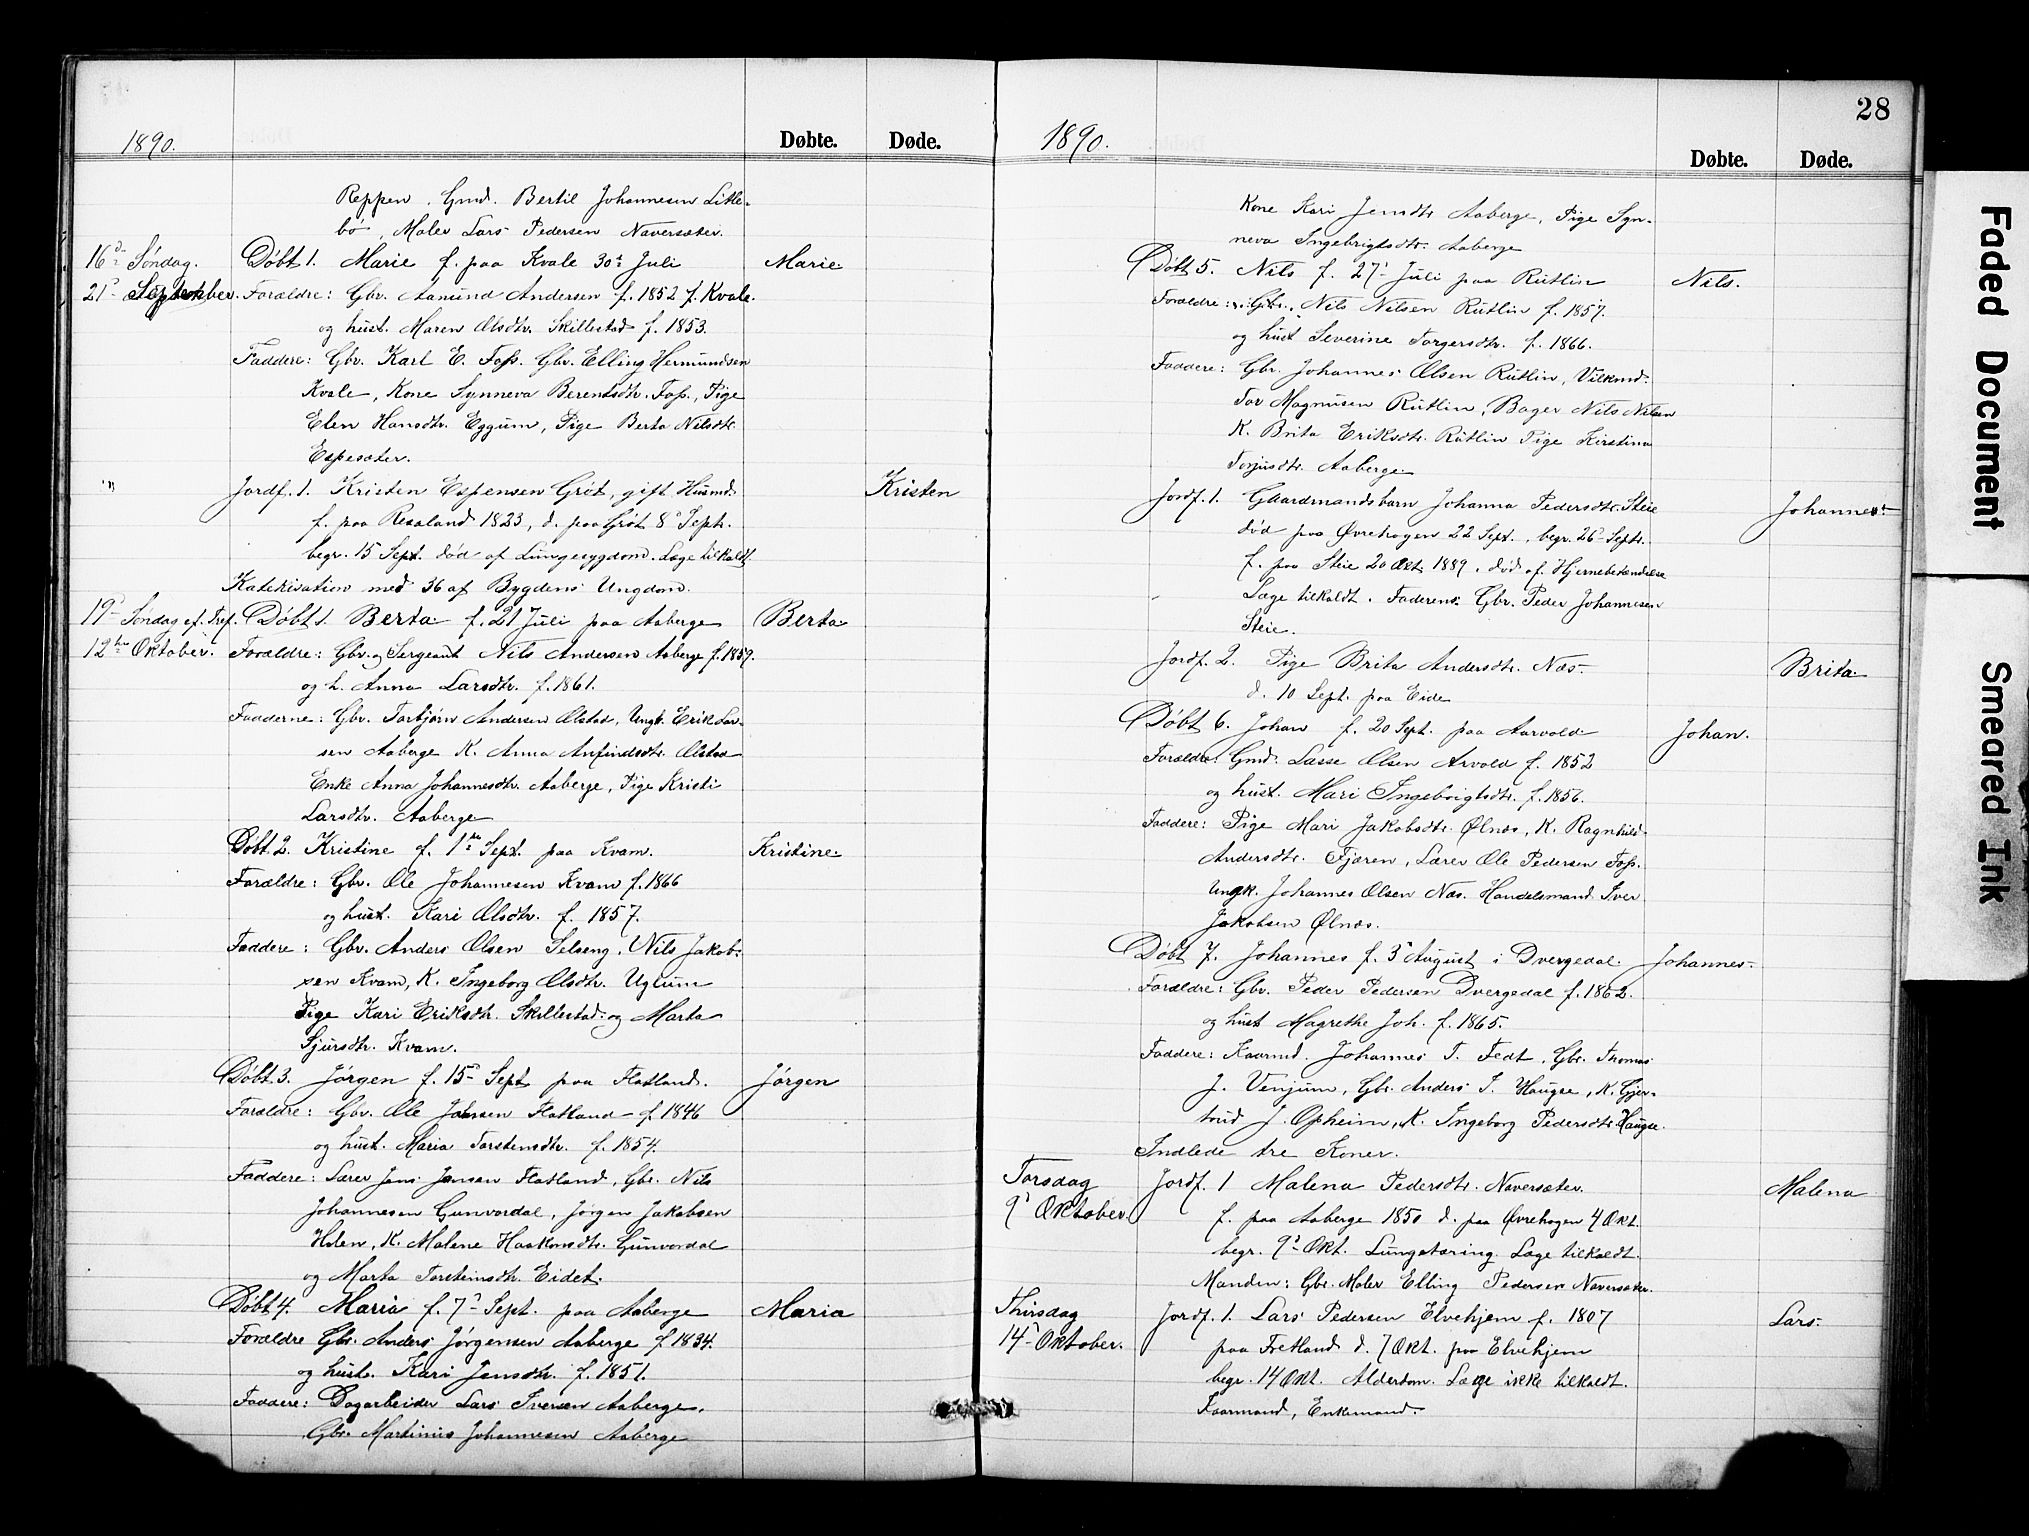 1890.
Døbte.
Døde.
Reppen. Gmd. Bertil Johannesen Litle-
bø, Maler Lars Pedersen Navarsæter.
16de Søndag. Døbt 1. Marie f. paa Kvale 30te Juli Marie
21 September. Forældre: Gbr. Aamund Andersen f. 1852 f. Kvale.
og hust. Maren Olsdtr. Skillestad f. 1853.
Faddere: Gbr. Karl E. Foss. Gbr. Elling Hermundsen
Kvale, Kone Synneva Berentsdtr. Foss, Pige
Elen Hansdtr. Eggum, Pige Berta Nilsdtr.
Espesæter.
" Jordf. 1. Kristen Espensen Grøt, gift Husmd. Kristen
f. paa Resaland 1823, d. paa Grøt 8 Septr.
begr. 15 Sept. død af Lungesygdom. Læge tilkaldt
Katekisation med 36 af Bygdens Ungdom.
19 Søndag ef. Tref. Døbt 1. Berta f. 21 Juli paa Aaberge Berta
12te Oktober. Forældre: Gbr. og Sergeant Nils Andersen Aaberge f. 1859.
og h. Anna Larsdtr. f. 1861.
Fadderne: Gbr. Torbjørn Andersen Ølstad, Ungk. Erik Lar-
sen Aaberge K. Anna Anfindsdtr. Ølstad
Enke Anna Johannesdtr. Aaberge, Pige Kristi
Larsdtr. Aaberge
Døbt 2. Kristine f. 1ste Sept. paa Kvam. Kristine
Forældre: Gbr. Ole Johannesen Kvam f. 1866
og hust. Kari Olsdtr. f. 1857.
Faddere: Gbr. Anders Olsen Selseng. Nils Jakob-
sen Kvam, K. Ingeborg Olsdtr. Uglum
Pige Kari Eriksdtr. Skillestad og Marta
Sjursdtr. Kvam.
Døbt 3. Jørgen f. 15 Sept paa Flatland. Jørgen
Forældre: Gbr. Ole Jensen Flatland f. 1846
og hust. Maria Torstensdtr. f. 1854.
Faddere: Lærer Jens Jensen Flatland, Gbr. Nils
Johannesen Gunvordal, Jørgen Jakobsen
Hilen, K. Malene Haakonsdtr. Gunvordal
og Marta Torsteinsdtr. Eidet.
Døbt 4. Maria f. 7 Sept. paa Aaberge Maria
Forældre Gbr. Anders Jørgensen Aaberge f. 1834.
og hust. Kari Jensdtr. f. 1851.
Faddere: Dagarbeider Lars Iversen Aaberge.
Gbr. Martinus Johannesen Aaberge
28
1890.
Døbte.
Døde.
Kone Kari Jensdtr. Aaberge, Pige Syn-
neva Ingebrigtsdtr. Aaberge
Døbt 5. Nils f. 27 Juli paa Rutlin Nils.
Forældre: Gbr. Nils Nilsen Rutlin f. 1857.
og hust Severine Torgersdtr. f. 1866.
Faddere: Gbr. Johannes Olsen Rutlin,
Tor Magnusen Rutlin, Bager Nils Nilsen
K. Brita Eriksdtr. Rutlin Pige Kirstina
Torjusdtr. Aaberge.
Jordf. 1. Gaardmandsbarn Johanna Pedersdtr. Steie Johanne
død paa Øvrehagen 22 Sept., begr. 26 Septr.
f. paa Steie 20 Okt 1889. død af Hjernebetændelse
Læge tilkaldt. Faderens Gbr. Peder Johannesen
Steie.
Jordf. 2. Pige Brita Andersdtr. Næs Brita
d. 10 Sept. paa Eide
Døbt 6. Johan f. 20 Sept. paa Aarvold Johan.
Forældre. Gmd. Lasse Olsen Arvold f. 1852
og hust. Mari Ingebrigtsdtr. f. 1856.
Faddere: Pige Mari Jakobsdtr. Ølnæs, K. Ragnhild
Andersdtr. Fjæren, Lærer Ole Pedersen Foss.
Ungk. Johannes Olsen Næs. Handelsmand Iver
Jakobsen Ølnæs.
Døbt 7. Johannes f. 3 August i Dvergedal. Johannes
Forældre: Gbr. Peder Pedersen Dvergedal f. 1862.
og hust Magrethe Joh. f. 1865.
Faddere: Kaarmd. Johannes T. Fedt, Gbr. Thomas
J. Venjum, Gbr. Anders I. Haugse, K. Gjer-
trud J. Opheim, K. Ingeborg Pedersdtr. Haugse.
Indlede tre Koner.
Torsdag Jordf. 1 Malena Pedersdtr. Navarsæter. Malena
9 Oktober. f. paa Aaberge 1850 d. paa Øvrehagen 4 Okt.
begr. 9 Okt. Lungetæring. Læge tilkaldt.
Manden: Gbr. Maler Elling Pedersen Navarsæter.
Thirsdag Jordf. 1. Lars Pedersen Elvehjem f. 1807 Lars
14 Oktober. paa Fretland d. 7 Okt. paa Elvehjem
begr. 14 Okt. Alderdom. Læge ikke tilkaldt.
Kaarmand, Enkemand.
Faded Document
Smeared Ink